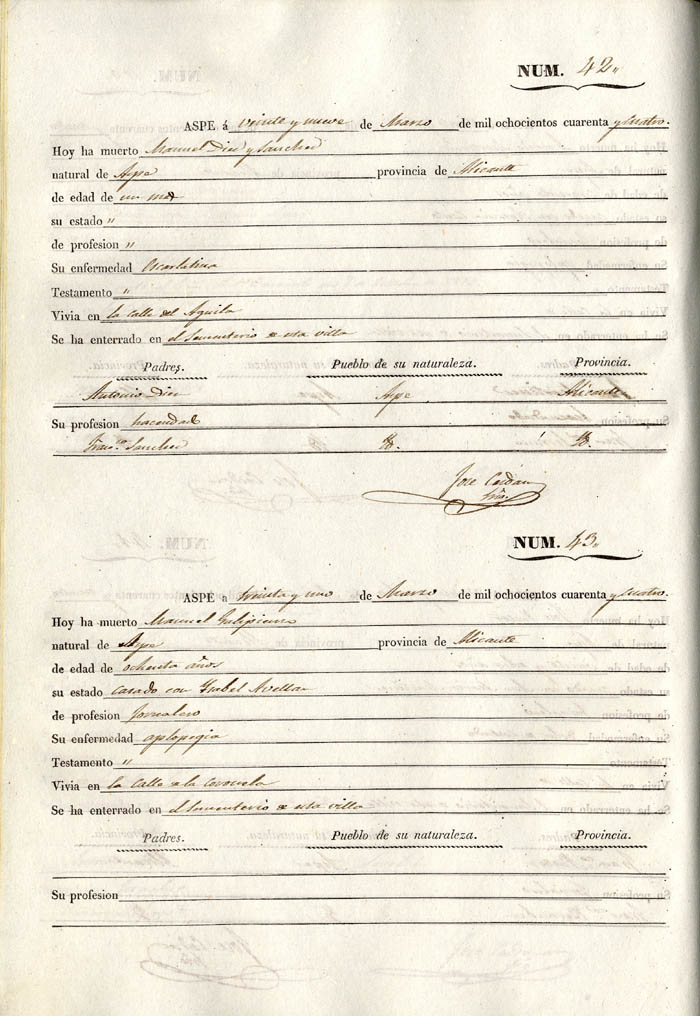 NUM. 42"
ASPE á veinte y nueve de Marzo de mil ochocientos cuarenta y cuatro.
Hoy ha muerto Manuel Diez y Sanchez
natural de Aspe provincia de Alicante
de edad de un mes
su estado "
de profesion "
Su enfermedad Escarlatina
Testamento "
Vivia en la calle del Aguila
Se ha enterrado en el Sementerio de esta villa
Padres. Pueblo de su naturaleza. Provincia.
Antonio Diez Aspe Alicante
Su profesion hacendado
Franco. Sanchez
Jose
NUM. 43"
ASPE a treinta y uno de Marzo de mil ochocientos cuarenta y cuatro.
Hoy ha muerto Manuel
natural de Aspe provincia de Alicante
de edad de ochenta años
su estado casado con Ysabel Avellan
de profesion Jornalero
Su enfermedad aplopegia
Testamento "
Vivia en la calle de la
Se ha enterrado en el Sementerio de esta villa
Padres. Pueblo de su naturaleza. Provincia.
Su profesion